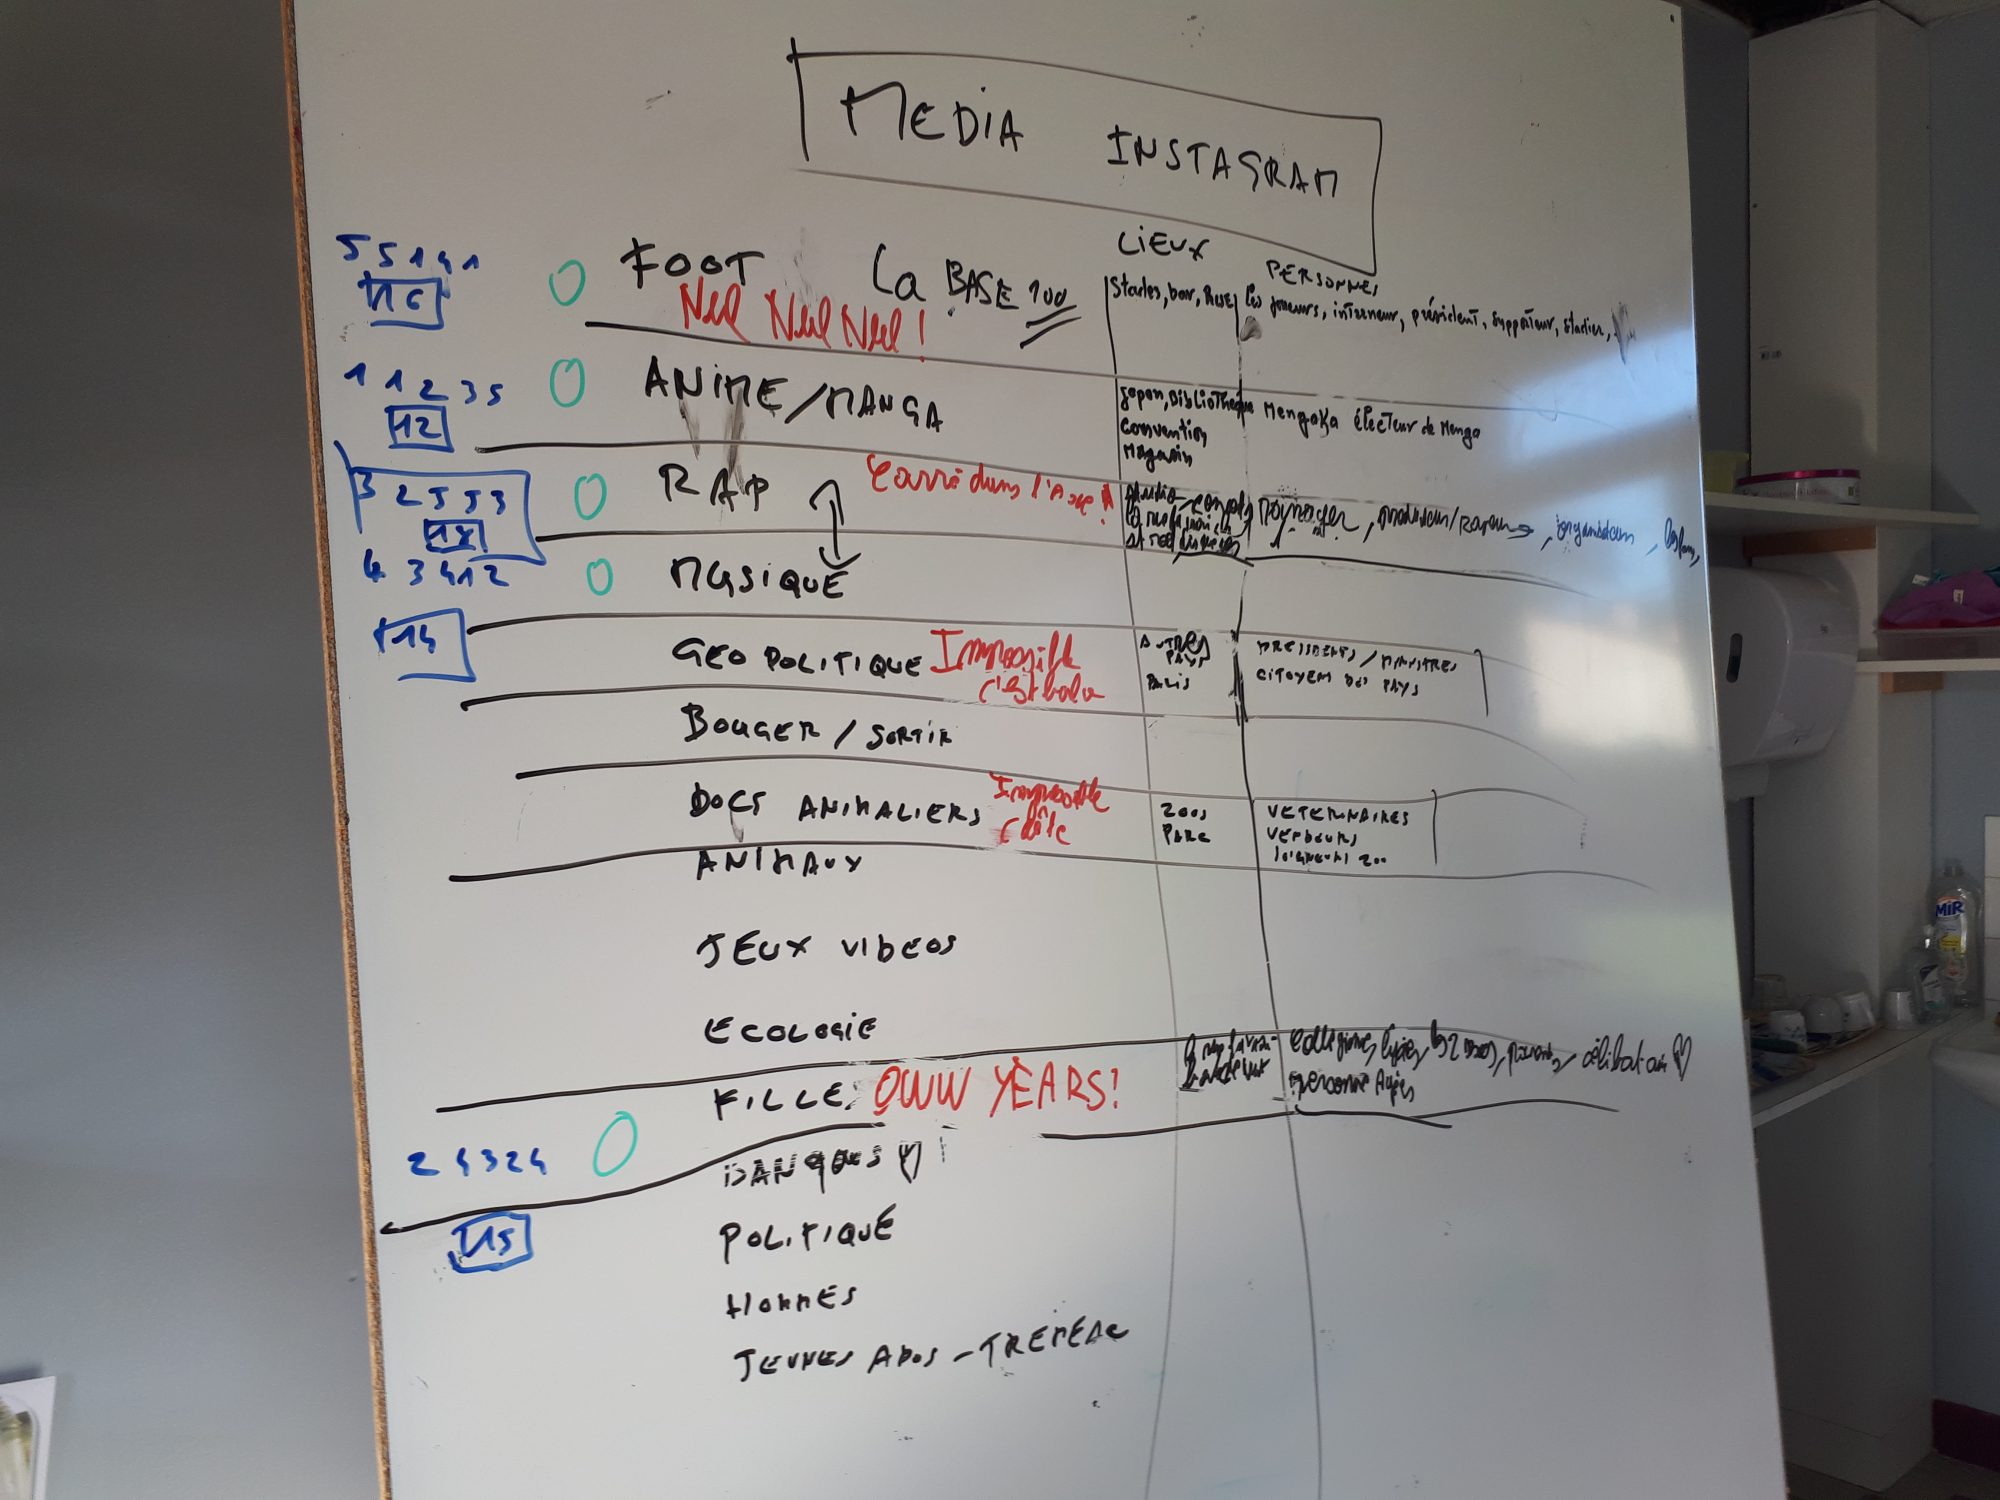 MEDIA INSTAGRAM
LIEUX
PERSONNES
5 5 1 4 1
16
FOOT La BASE 100
Nul Nul Nul !
Stades, bar, Rue
les joueurs, présidents, supporteur, stadier,
1 1 2 3 5
12
ANIME / MANGA
Japon, Bibliothèque
Convention
Magasin
Mengaka électeur de Menga
3 2 5 5 3
18
RAP
Carré dans l'axe !
Manager, producteur/rapeurs, organisateurs,
4 3 4 1 2
14
MUSIQUE
GEOPOLITIQUE Impossible
AUTRES
PAYS
PARIS
PRESIDENTS / MINISTRES
CITOYEN DES PAYS
BOUGER / SORTIR
DOCS ANIMALIERS Impossible
ZOOS
PARC
VETERINAIRES
VENDEURS
SOIGNEURS ZOO
ANIMAUX
JEUX VIDEOS
ECOLOGIE
FILLE OWW YEARS!
personne Agées
2 4 3 2 4
15
POLITIQUE
HOMMES
JEUNES ADOS - TREMEAC
MIR